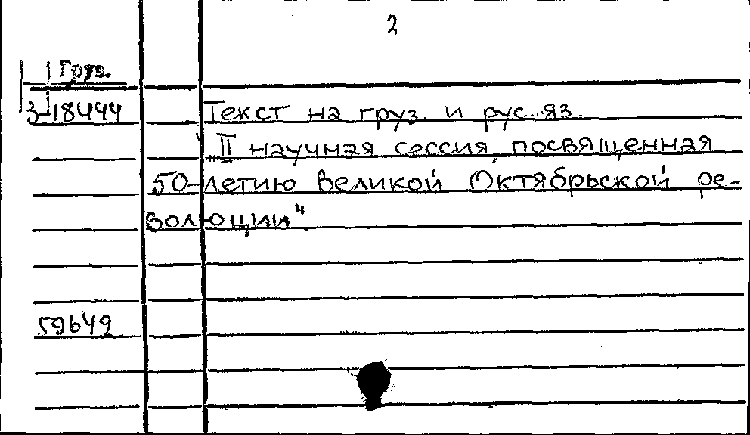 2
Груз.
3-18444
Текст на груз. и рус. яз.
"II научная сессия, посвященная
50-летию Великой Октябрьской ре-
волюции"
59649